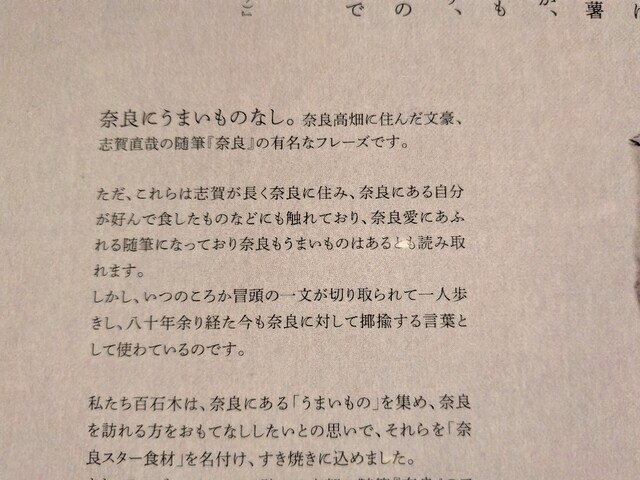 奈良にうまいものなし。奈良高畑に住んだ文豪、
志賀直哉の随筆『奈良』の有名なフレーズです。
ただ、これらは志賀が長く奈良に住み、奈良にある自分
が好んで食したものなどにも触れており、奈良愛にあふ
れる随筆になっており奈良もうまいものはあるとも読み取
れます。
しかし、いつのころか冒頭の一文が切り取られて一人歩
きし、八十年余り経た今も奈良に対して揶揄する言葉と
して使わているのです。
私たち百石木は、奈良にある「うまいもの」を集め、奈良
を訪れる方をおもてなししたいとの思いで、それらを「奈
良スター食材」を名付け、すき焼きに込めました。